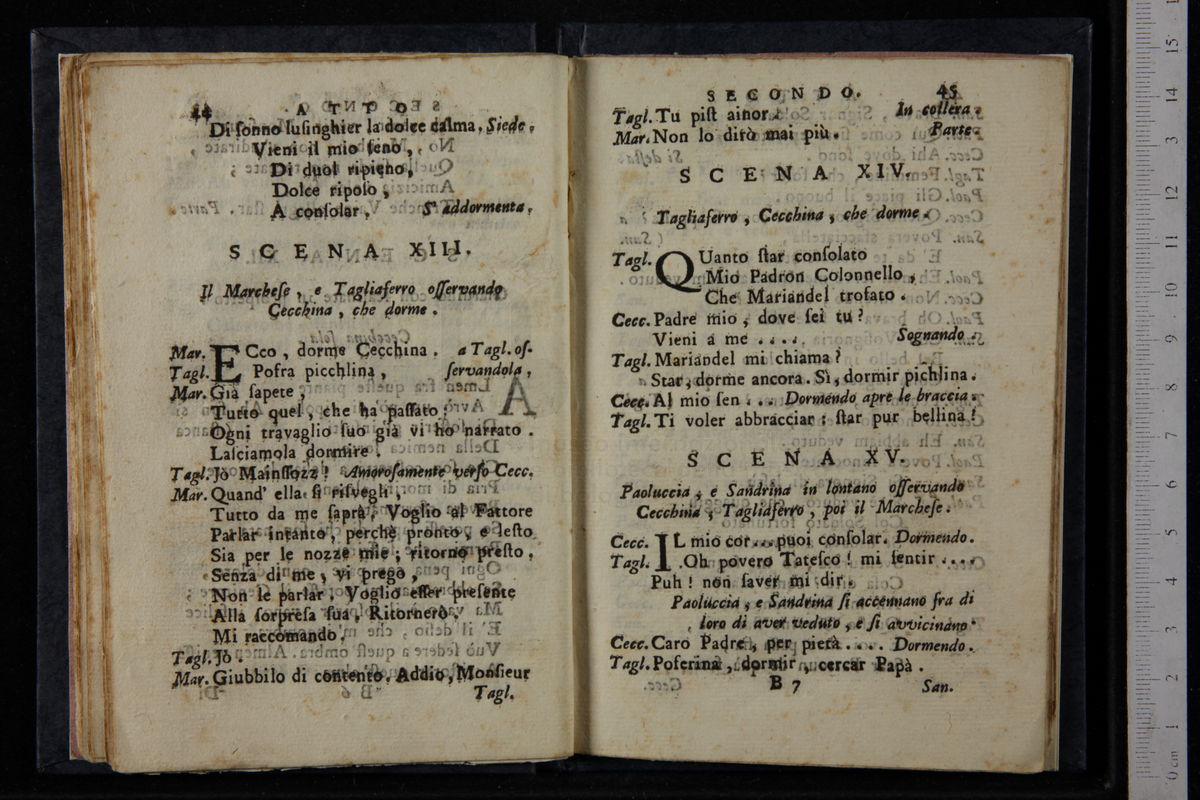 44 ATTO
Di ſonno luſinghier la dolce calma, Siede.
Vieni il mio ſeno,
Di duol ripieno,
Dolce ripoſo,
A conſolar. S' addormenta.
SCENA XIII.
Il Marcheſe, e Tagliaferro oſſervando
Cecchina, che dorme.
Mar. ECco, dorme Cecchina. a Tagl. oſ-
Tagl. Pofra picchlina, ſervandola,
Mar. Già ſapete,
Tutto quel, che ha paſſato;
Ogni travaglio ſuo già vi ho narrato.
Laſciamola dormire.
Tagl. Jò Mainſſozz! Amoroſamente verſo Cecc.
Mar. Quand' ella ſi riſvegli,
Tutto da me ſaprà. Voglio al Fattore
Parlar intanto, perchè pronto, e leſto
Sia per le nozze mie; ritorno preſto,
Senza di me, vi prego,
Non le parlar. Voglio eſſer preſente
Alla ſorpreſa ſua, Ritornerò.
Mi raccomando.
Tagl. Jò.
Mar. Giubbilo di contento. Addio, Monſieur
Tagl.
SECONDO. 45
Tagl. Tu piſt ainor. In collera.
Mar. Non lo dirò mai più. Parte.
SCENA XIV.
Tagliaferro, Cecchina, che dorme.
Tagl. QUanto ſtar conſolato
Mio Padron Colonnello,
Che Mariandel trofato.
Cecc. Padre mio, dove ſei tu?
Vieni a me .... Sognando.
Tagl. Mariandel mi chiama?
Star, dorme ancora. Sì, dormir pichlina.
Cecc. Al mio ſen ... Dormendo apre le braccia.
Tagl. Ti voler abbracciar: ſtar pur bellina!
SCENA XV.
Paoluccia, e Sandrina in lontano oſſervando
Cecchina, Tagliaferro, poi il Marcheſe.
Cecc. IL mio cor... puoi conſolar. Dormendo.
Tagl. Oh povero Tateſco! mi ſentir ....
Puh! non ſaver mi dir.
Paoluccia, e Sandrina ſi accennano fra di
loro di aver veduto, e ſi avvicinano.
Cecc. Caro Padre, per pietà .... Dormendo.
Tagl. Poferina, dormir, cercar Papà.
B 7 San.